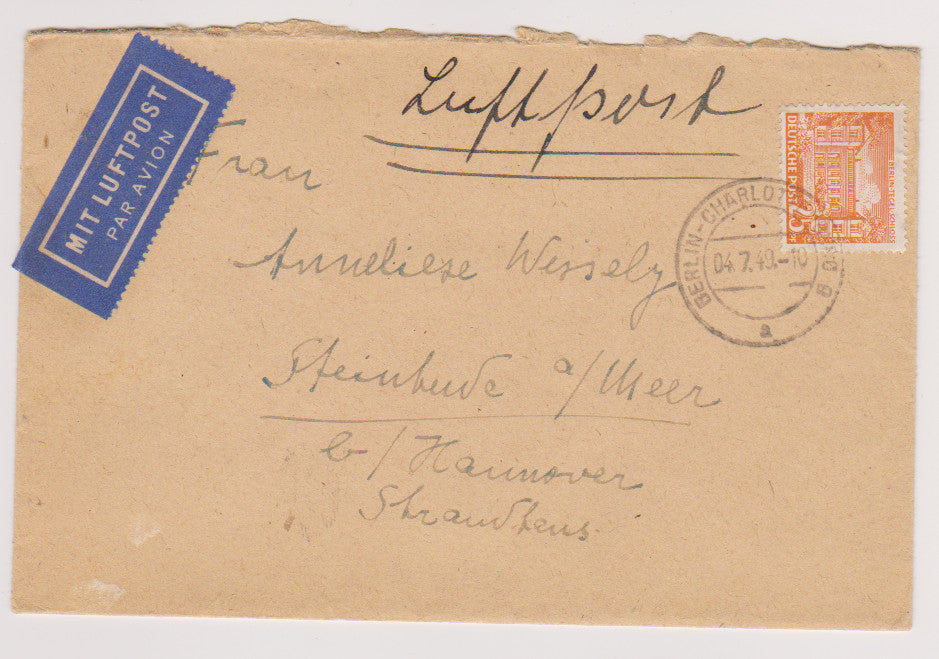 MIT LUFTPOST
PAR AVION
Luftpost
DEUTSCHE POST
25
BERLIN-TEGEL-SCHLOSS
BERLIN-CHARLOT
04.7.49.-10
a
Frau
Anneliese Wissely
Steinhude a/Meer
b/Hannover
Strandhaus